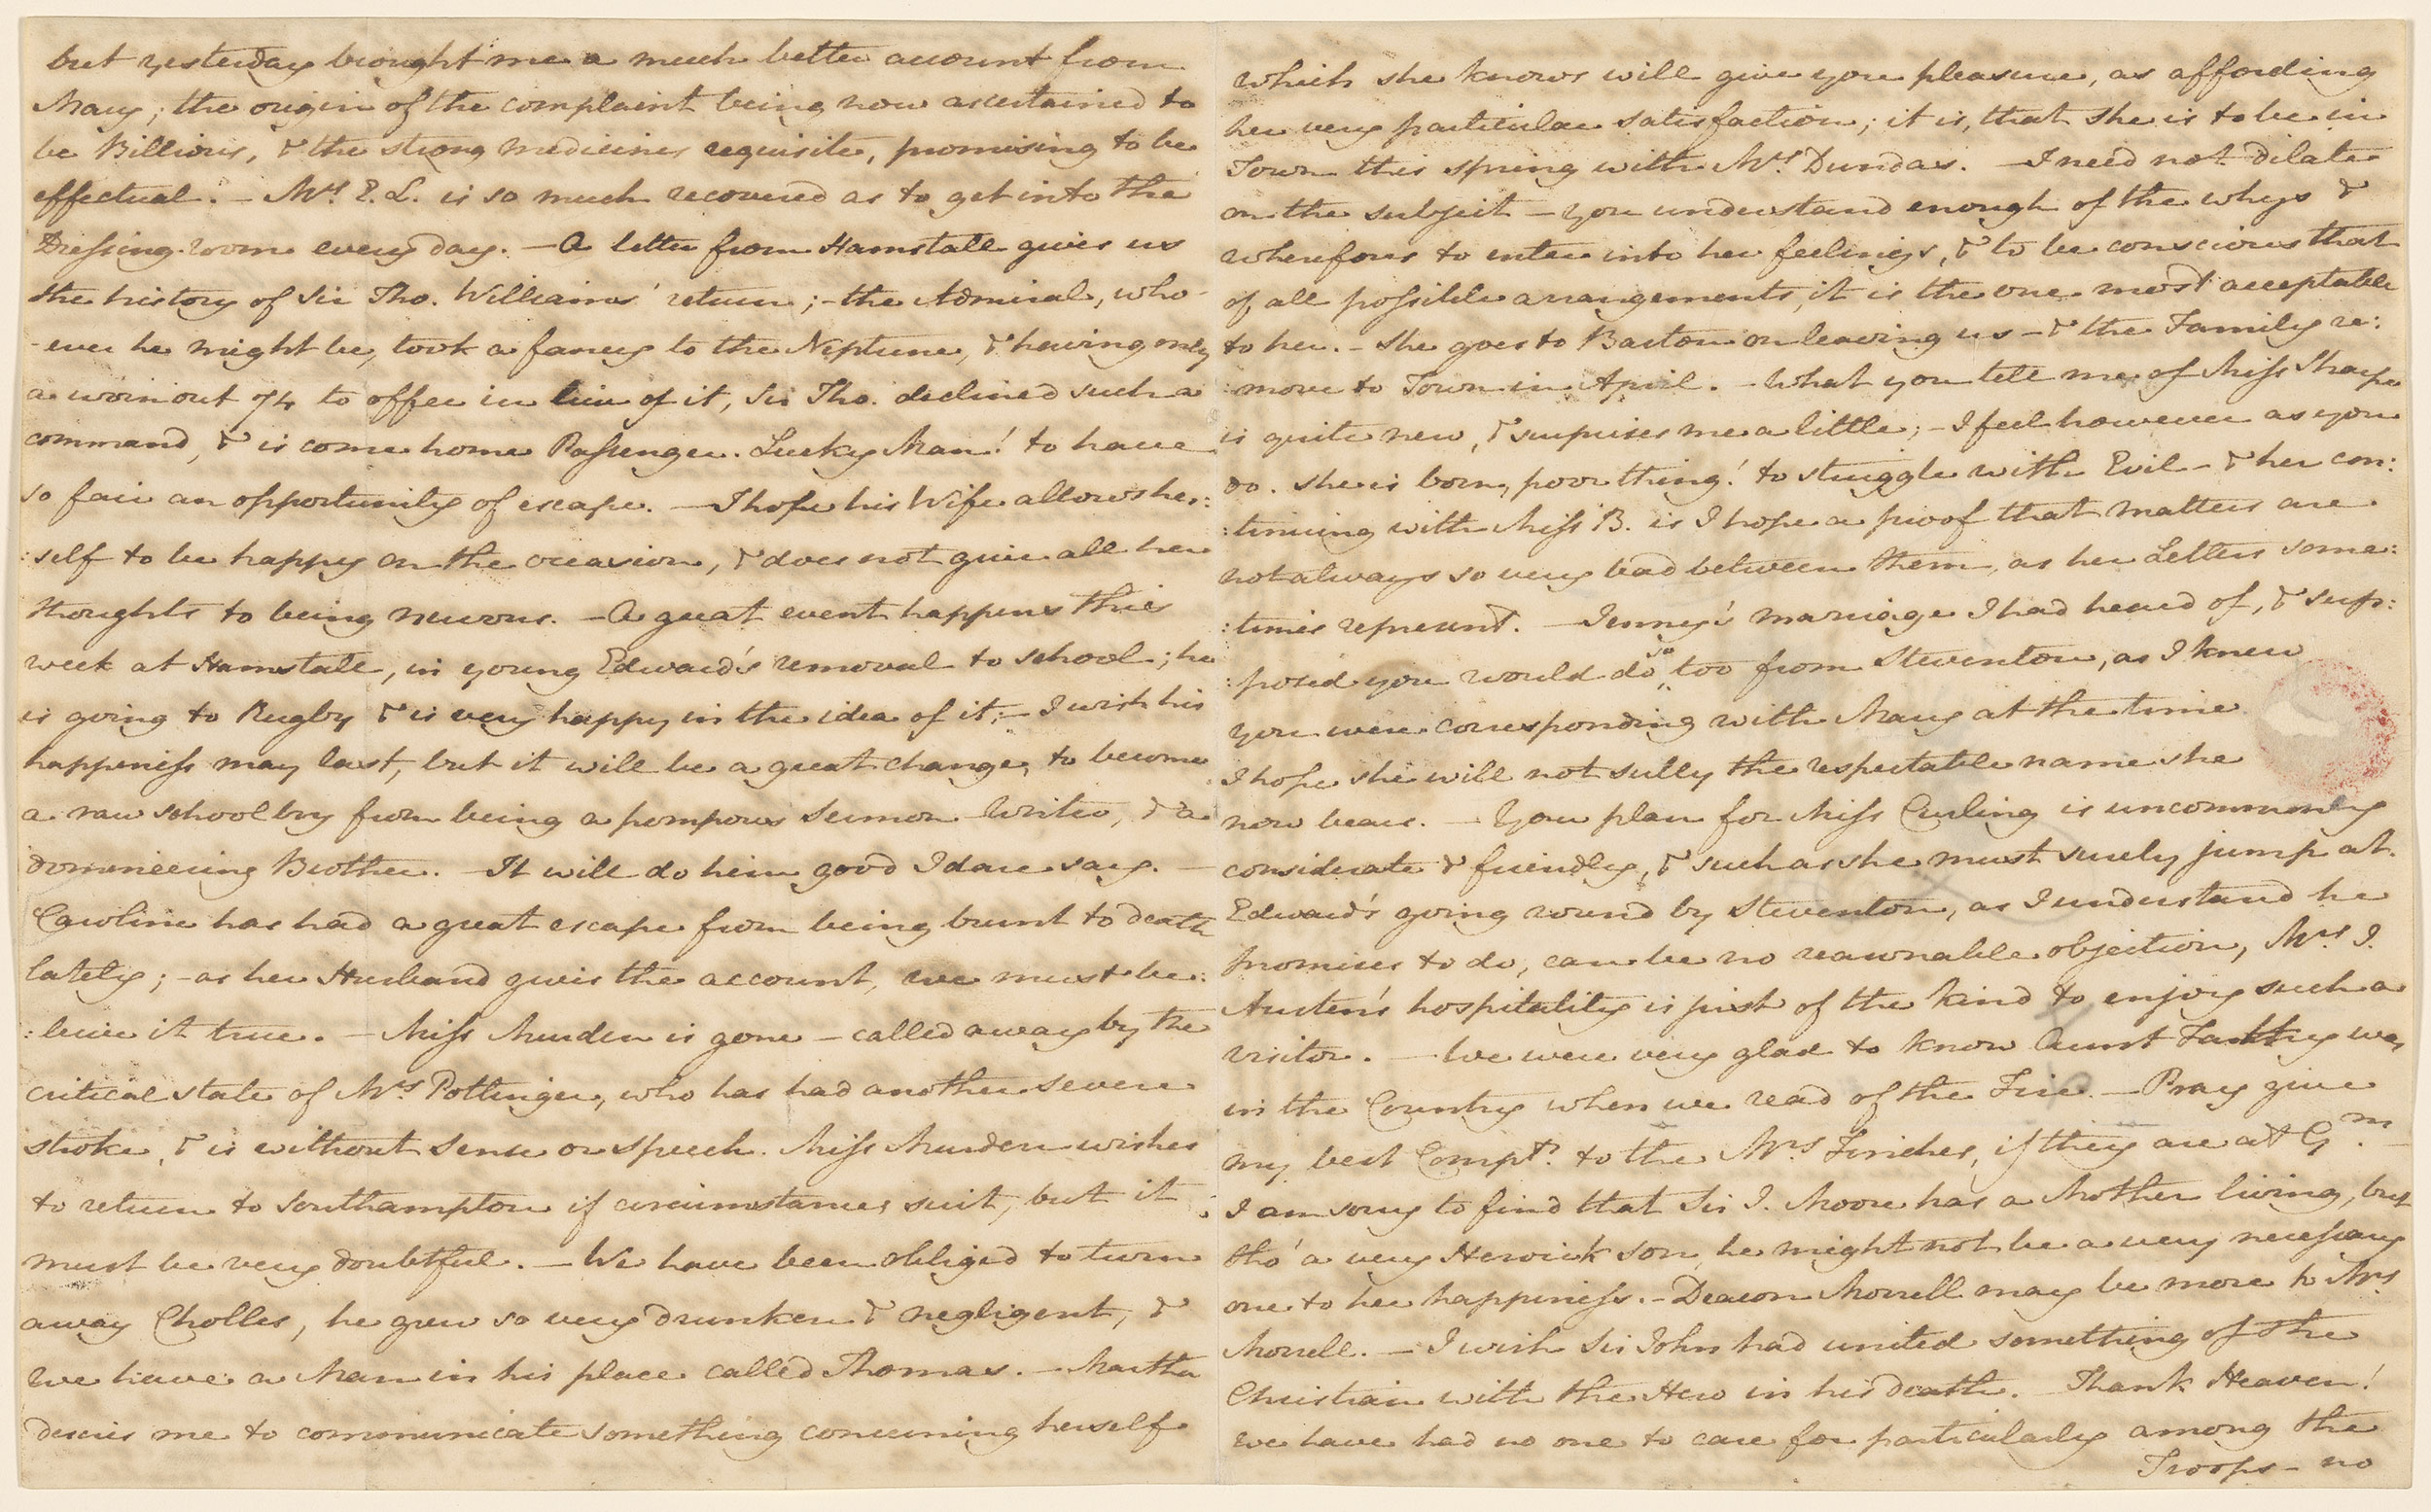 but yesterday brought me a much better account from
Mary; the origin of the complaint being now ascertained to
be Billious, & the strong medicines requisite, promising to be
effectual. – Mrs E. L. is so much recovered as to get into the
Dressing-room every day. – A letter from Hamstall gives us
the history of Sir Tho. Williams' return; – the Admiral, who-
-ever he might be, took a fancy to the Neptune, & having only
a wornout 74 to offer in lieu of it, Sir Tho. declined such a
command, & is come home Passenger. Lucky Man! to have
so fair an opportunity of escape. – I hope his Wife allows her:
:self to be happy on the occasion, & does not give all her
thoughts to being nervous. – A great event happens this
week at Hamstall, in young Edward's removal to school; he
is going to Rugby & is very happy in the idea of it. – I wish his
happiness may last, but it will be a great change, to become
a raw school boy from being a pompous Sermon-Writer, & a
domineering Brother. – It will do him good I dare say. –
Caroline has had a great escape from being burnt to death
lately; – as her Husband gives the account, we must be:
:lieve it true. – Miss Murden is gone – called away by the
critical state of Mrs Pottinger, who has had another severe
stroke, & is without Sense or speech. Miss Murden wishes
to return to Southampton if circumstances suit, but it
must be very doubtful. – We have been obliged to turn
away Cholles, he grew so very drunken & negligent, &
we have a Man in his place called Thomas. – Martha
desires me to communicate something concerning herself
which she knows will give you pleasure, as affording
her very particular satisfaction; it is, that she is to be in
Town this spring with Mrs Dundas. – I need not dilate
on the subject – you understand enough of the whys &
wherefores to enter into her feelings, & to be conscious that
of all possible arrangements, it is the one most acceptable
to her. – She goes to Barton on leaving us – & the Family re:
:move to Town in April. – What you tell me of Miss Sharpe
is quite new, & surprises me a little; – I feel however as you
do. She is born, poor thing! to struggle with Evil – & her con:
:tinuing with Miss B. is I hope a proof that Matters are
not always so very bad between them, as her Letters some:
:times represent. – Jenny's marriage I had heard of, & sup:
:posed you would do so too from Steventon, as I knew
you were corresponding with Mary at the time
I hope she will not sully the respectable name she
now bears. – Your plan for Miss Curling is uncommonly
considerate & friendly, & such as she must surely jump at.
Edward's going round by Steventon, as I understand he
promises to do, can be no reasonable objection, Mrs J.
Austen's hospitality is just of the kind to enjoy such a
visitor. – We were very glad to know Aunt Fatty was
in the Country when we read of the Fire. – Pray give
my best Compts. to the Mrs Finches, if they are at Gm.
I am sorry to find that Sir J. Moore has a Mother living, but
tho' a very Heroick son, he might not be a very necessary
one to her happiness. – Deacon Morrell may be more to Mrs
Morrell. – I wish Sir John had united something of the
Christian with the Hero in his death. – Thank Heaven!
we have had no one to care for particularly among the
Troops – no